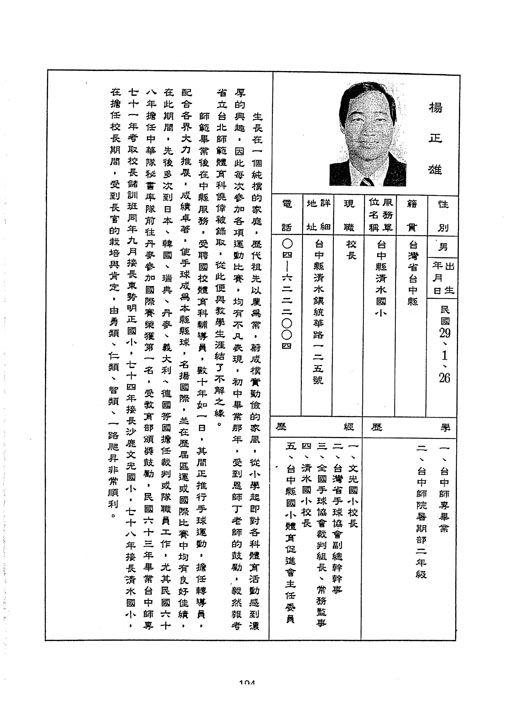 楊正雄
性別 男
出生年月日 民國29、1、26
籍貫 台灣省台中縣
服務單位名稱 台中縣清水國小
現職 校長
詳細地址 台中縣清水鎮統華路一二五號
電話 〇四—六二二二〇〇四
學歷
一、台中師專畢業
二、台中師院暑期部二年級
經歷
一、文光國小校長
二、台灣省手球協會副總幹事
三、全國手球協會裁判組長、常務監事
四、清水國小校長
五、台中縣國小體育促進會主任委員
生長在一個純樸的家庭，歷代祖先以農為常，蔚成樸實勤儉的家風，從小學起即對各科體育活動感到濃
厚的興趣，因此每次參加各項運動比賽，均有不凡表現，初中畢業那年，受到恩師丁老師的鼓勵，毅然報考
省立台北師範體育科僥倖被錄取，從此便與教學生涯結了不解之緣。
師範畢業後在中縣服務，受聘國校體育科輔導員，數十年如一日，其間正推行手球運動，擔任輔導員，
配合各界大力推展，成績卓著，使手球成為本縣縣球，名揚國際，並在歷屆區運或國際比賽中均有良好佳績，
在此期間，先後多次到日本、韓國、瑞典、丹麥、義大利、德國等國擔任裁判或隊職員工作，尤其民國六十
八年擔任中華隊秘書率隊前往丹麥參加國際賽榮獲第一名，受教育部頒獎鼓勵，民國六十三年畢業台中師專
七十一年考取校長儲訓班同年九月接長東勢明正國小，七十四年接長沙鹿文光國小，七十八年接長清水國小，
在擔任校長期間，受到長官的栽培與肯定，由勇類、仁類、智類、一路爬昇非常順利。